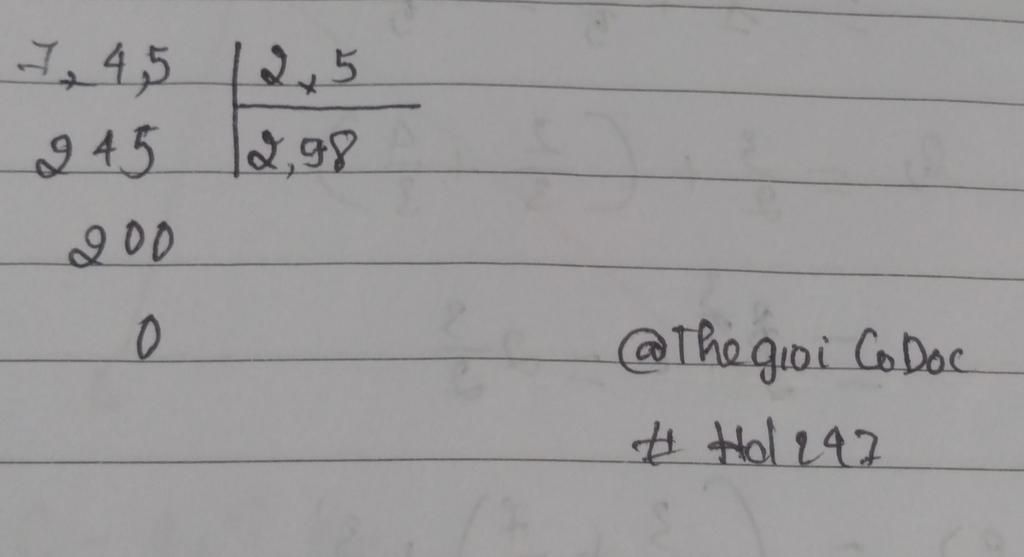 7,4,5 2,5
245 2,98
200
0
@Thegioi CoDoc
# Hd247